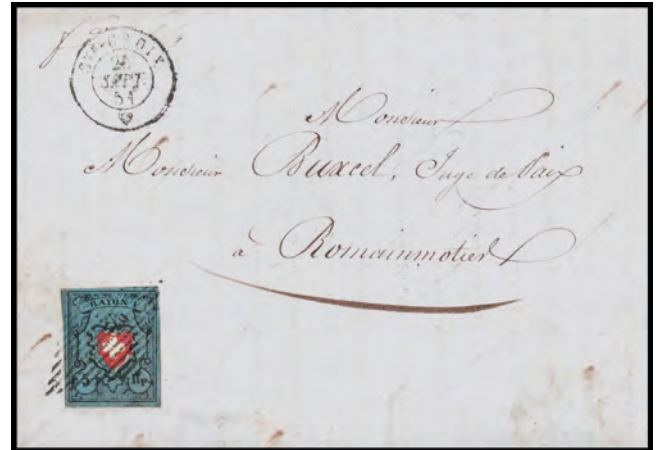 STE-CROIX
SEPT.
51
Monsieur
Monsieur Buxcel, Juge de Paix
à Romainmotier
RAYON I
5 Rp.